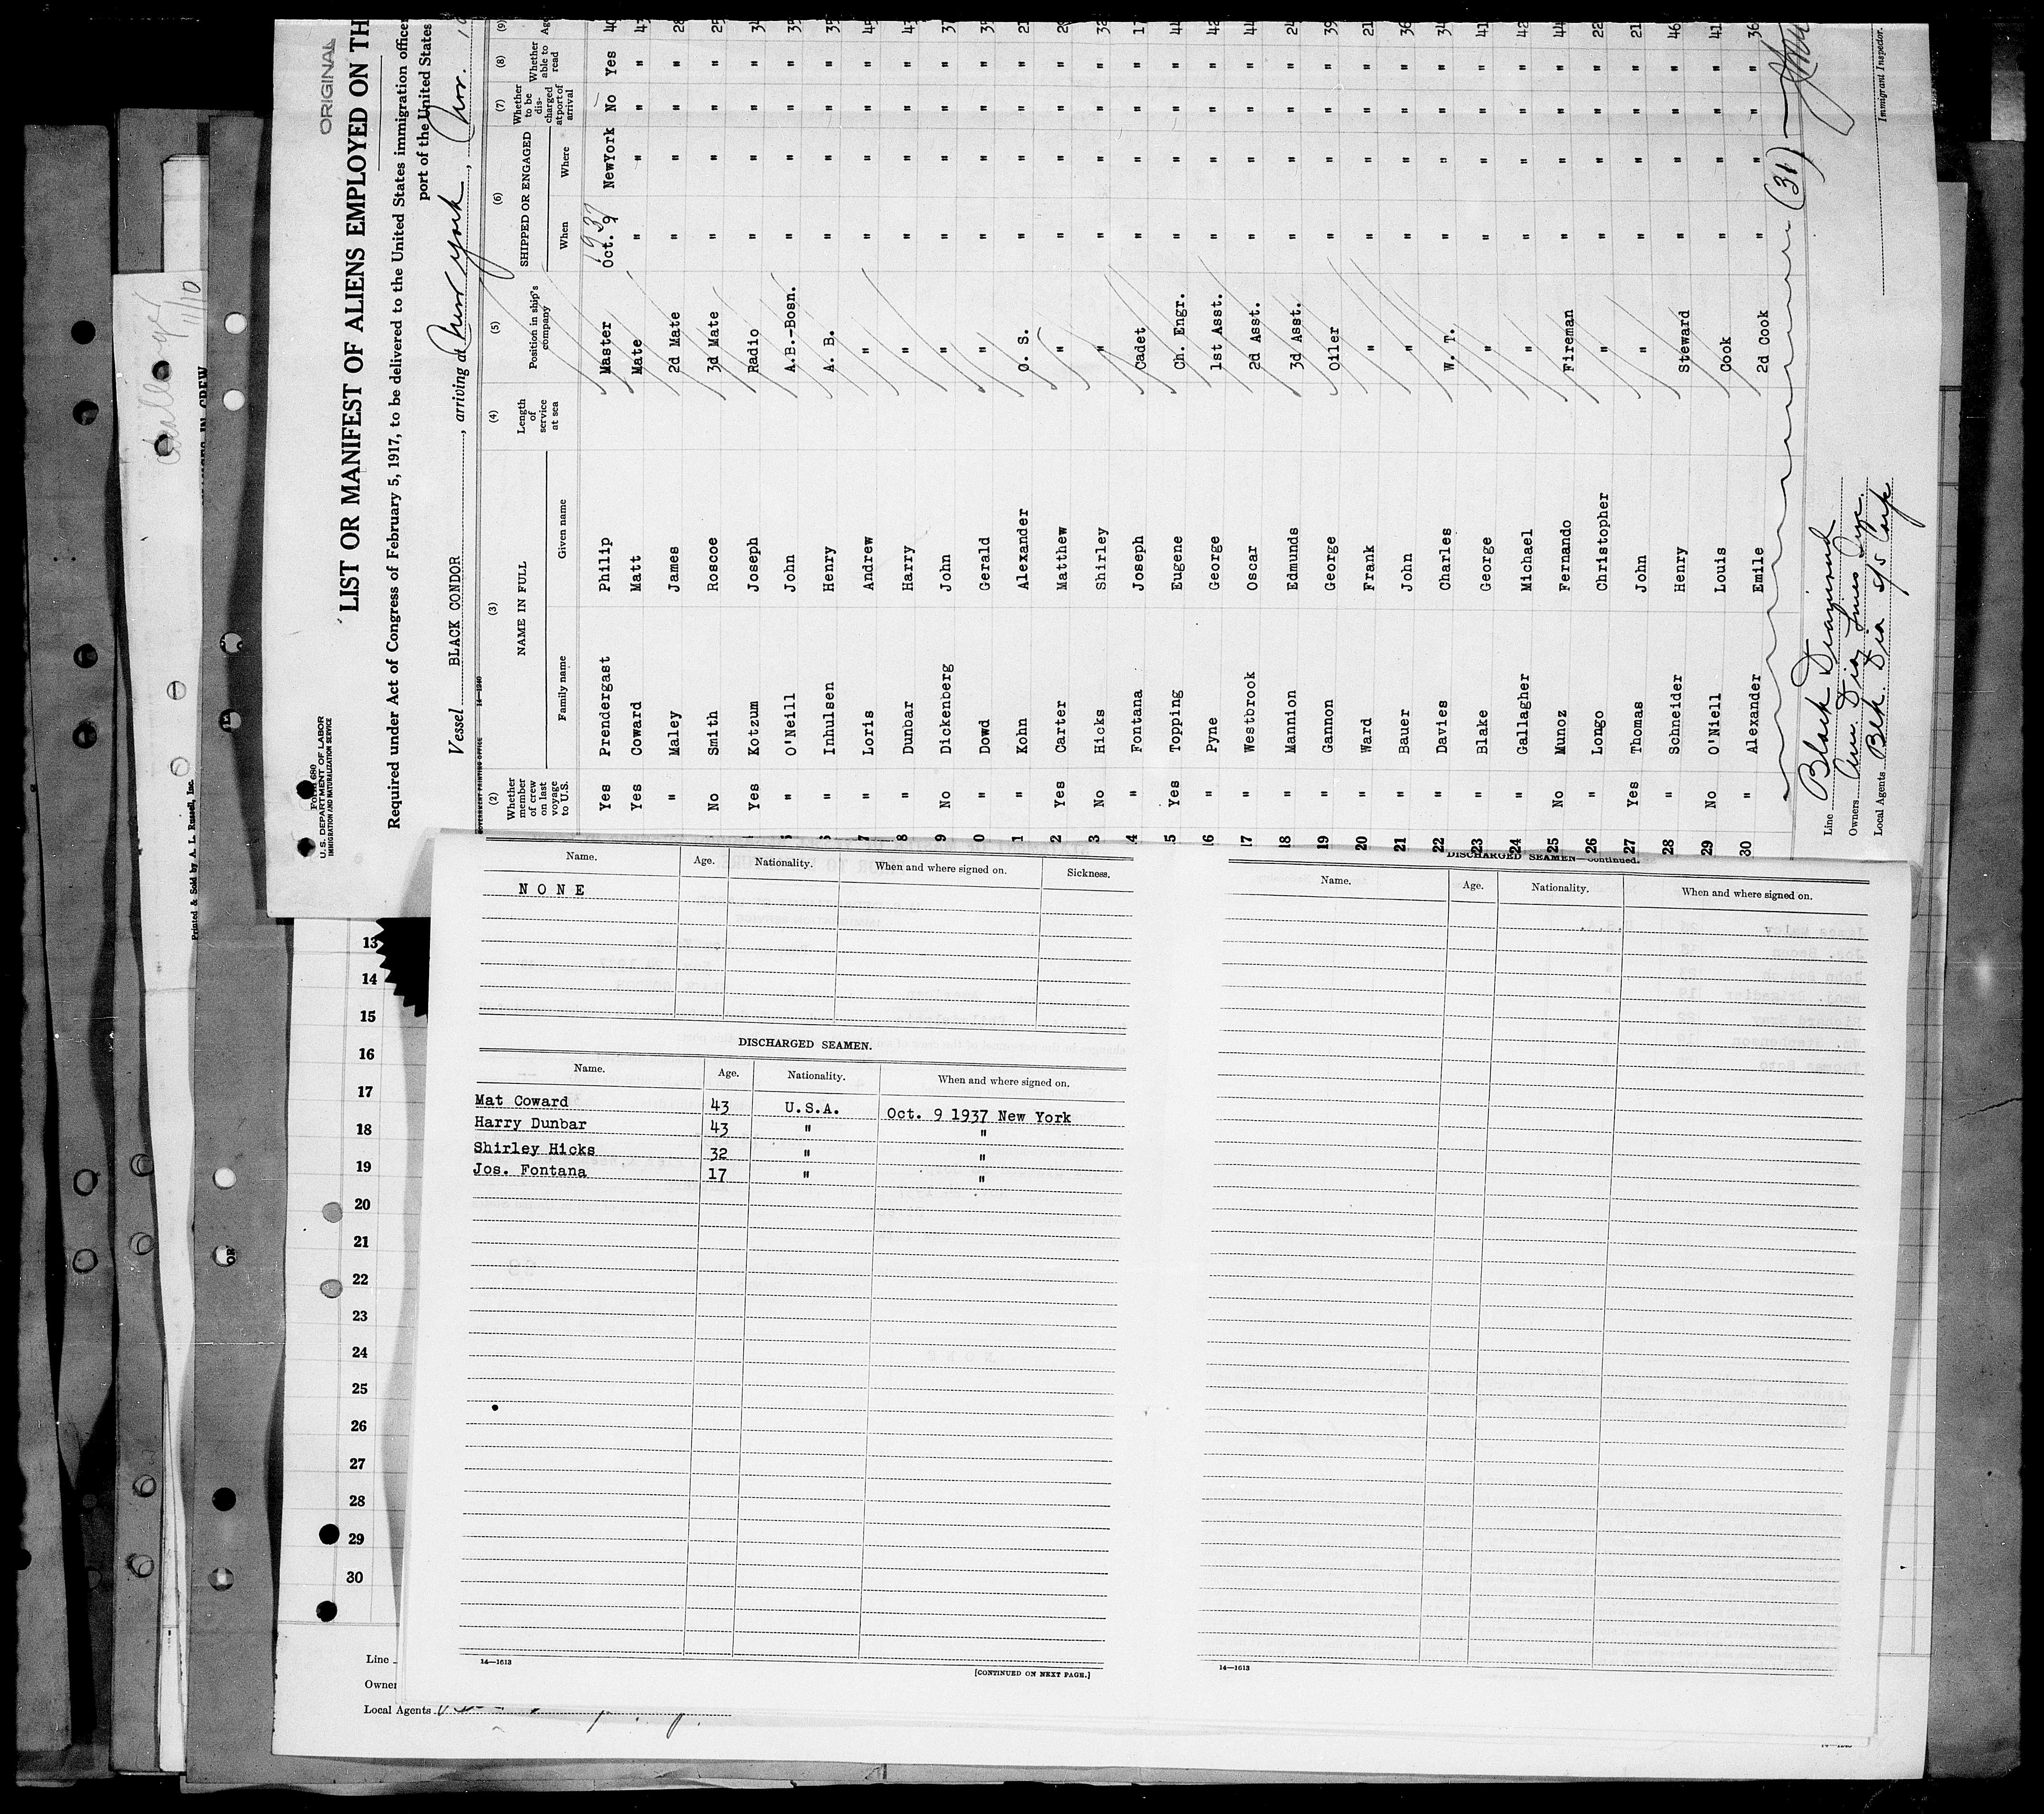 ORIGINAL
Form 680
U. S. DEPARTMENT OF LABOR
IMMIGRATION AND NATURALIZATION SERVICE
LIST OR MANIFEST OF ALIENS EMPLOYED ON TH
Required under Act of Congress of February 5, 1917, to be delivered to the United States immigration officer
port of the United States
Vessel BLACK CONDOR, arriving at New York, Nov. 10
GOVERNMENT PRINTING OFFICE 14—1240
(2) (3) (4) (5) (6) (7) (8) (9)
Whether member of crew on last voyage to U.S. NAME IN FULL Length of service at sea Position in ship's company SHIPPED OR ENGAGED Whether to be discharged at port of arrival Whether able to read Ag
Family name Given name When Where
1937
Yes Prendergast Philip Master Oct. 9 NewYork No Yes 40
Yes Coward Matt Mate " " " " 43
" Maley James 2d Mate " " " " 28
No Smith Roscoe 3d Mate " " " " 25
Yes Kotzum Joseph Radio " " " " 34
" O'Neill John A.B.-Bosn. " " " " 35
" Inhulsen Henry A. B. " " " " 35
7 " Loris Andrew " " " " " 45
8 " Dunbar Harry " " " " " 43
9 No Dickenberg John " " " " " 37
0 " Dowd Gerald " " " " " 35
1 " Kohn Alexander O. S. " " " " 21
2 Yes Carter Matthew " " " " " 28
3 No Hicks Shirley " " " " " 32
14 " Fontana Joseph Cadet " " " " 17
15 Yes Topping Eugene Ch. Engr. " " " " 44
16 " Pyne George 1st Asst. " " " " 42
17 " Westbrook Oscar 2d Asst. " " " " 44
18 " Mannion Edmunds 3d Asst. " " " " 24
19 " Gannon George Oiler " " " " 39
20 " Ward Frank " " " " " 21
21 " Bauer John " " " " " 36
22 " Davies Charles W. T. " " " " 34
23 " Blake George " " " " " 41
24 " Gallagher Michael " " " " " 42
25 No Munoz Fernando Fireman " " " " 44
26 " Longo Christopher " " " " " 22
27 Yes Thomas John " " " " " 21
28 " Schneider Henry Steward " " " " 46
29 No O'Niell Louis Cook " " " " 41
30 " Alexander Emile 2d Cook " " " " 36
(31)
Line Black Diamond
Owners Am. Dia Lines Inc.
Local Agents Blk. Dia S/S Corp
Immigrant Inspector.
11/10
Printed & Sold by A. L. Russell, Inc.
Name. Age. Nationality. When and where signed on. Sickness.
NONE
DISCHARGED SEAMEN.
Name. Age. Nationality. When and where signed on.
Mat Coward 43 U.S.A. Oct. 9 1937 New York
Harry Dunbar 43 " "
Shirley Hicks 32 " "
Jos. Fontana 17 " "
14—1613 [CONTINUED ON NEXT PAGE.]
DISCHARGED SEAMEN—Continued.
Name. Age. Nationality. When and where signed on.
14—1613
13
14
15
16
17
18
19
20
21
22
23
24
25
26
27
28
29
30
Line
Owner
Local Agents